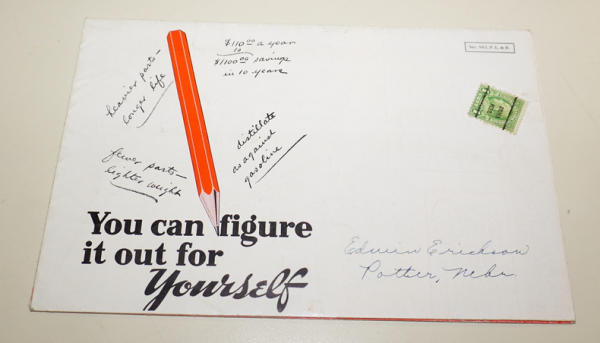 $110.00 a year
10
$1100.00 savings
in 10 years
Sec. 562, P. L. & R.
heavier parts—
longer life
distillate
as against
gasoline
fewer parts—
lighter weight
You can figure
it out for
Yourself
Edwin Erickson
Potter, Nebr.